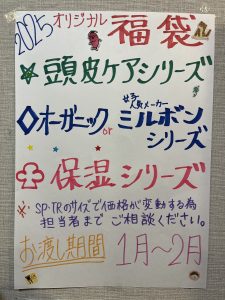 2025 オリジナル 福袋
☆頭皮ケアシリーズ
◇オーガニック or 世界人気メーカー ミルボン
シリーズ
保湿シリーズ
SP・TRのサイズで価格が変動する為
担当者まで ご相談ください。
お渡し期間 1月〜2月